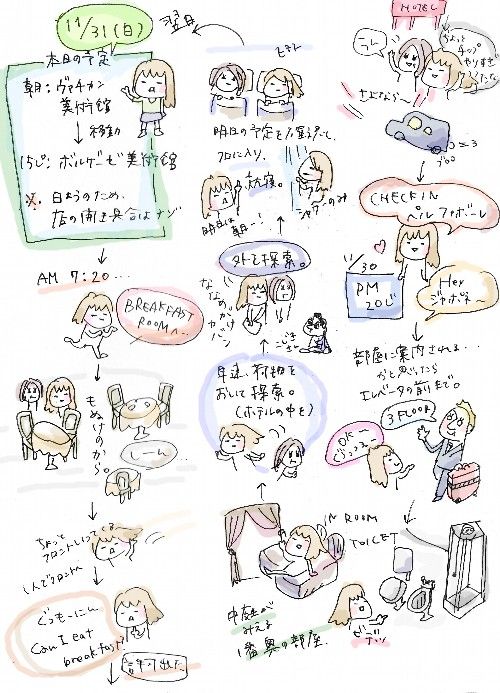 HOTEL
ちょっと
チップ
やりすぎ
だったな
さよなら〜
ブロロ
CHECK IN
ペル ファボーレ
11/30
PM
20じ
Hey
ジャポネ〜
部屋に案内される…
かと思いきや
エレベータの前まで。
3 FLOOR
OK
IN ROOM
TOILET
中庭が
みえる
1番奥の部屋
ビデッ
早速、荷物を
おいて探索。
(ホテルの中を)
外も探索。
ななめがけ
カバン
明日の予定を
フロに入り、
就寝。
シャワーのみ
明日は
朝一!
翌日
11/31(日)
本日の予定
朝:ヴァチカン
美術館
↓移動
15じ:ボルゲーゼ美術館
※日ようのため、
店の開き具合はナゾ
AM 7:20…
BREAKFAST
ROOMへ
もぬけのから。
しーん
ちょっと
フロントいってくる〜
しんでフロントへ
ぐっもーにん
Can I eat
breakfast?